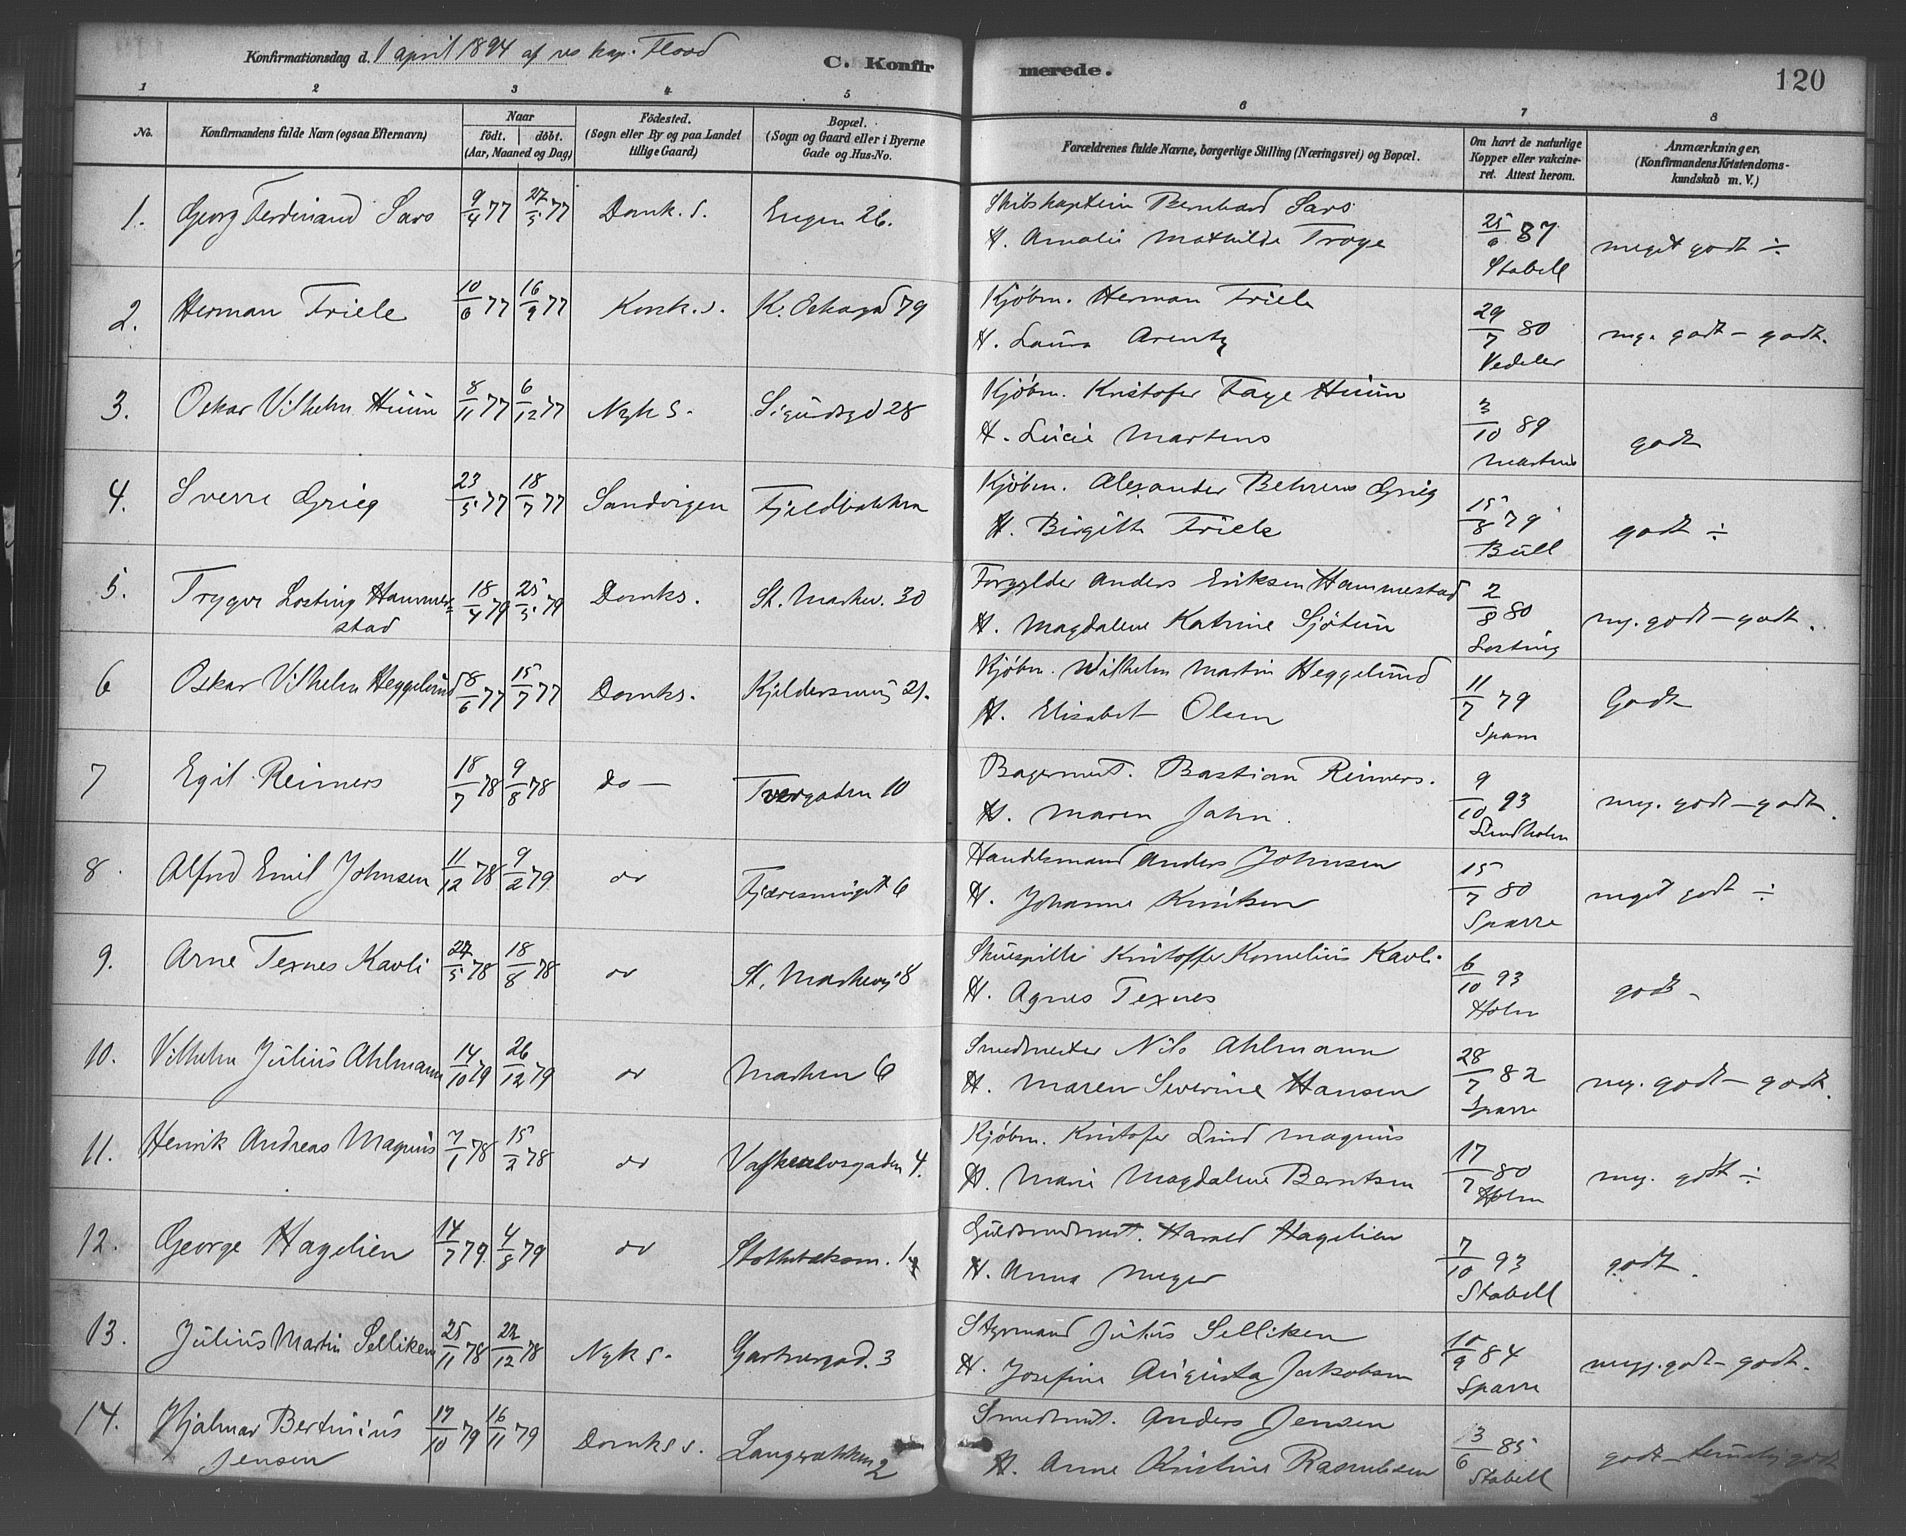 Konfirmationsdag d. 1 april 1894 af res kap. Flood
C. Konfirmerede.
120
1 2 3 4 5 6 7 8
No.
Konfirmandens fulde Navn (ogsaa Efternavn)
Naar
födt. döbt.
(Aar, Maaned og Dag)
Födested.
(Sogn eller By og paa Landet
tillige Gaard)
Bopæl.
(Sogn og Gaard eller i Byerne
Gade og Hus-No.
Forældrenes fulde Navne, borgerlige Stilling (Næringsvei) og Bopæl.
Om havt de naturlige
Kopper eller vakcine-
ret. Attest herom.
Anmærkninger,
(Konfirmandens Kristendoms-
kundskab m. V.)
1. Georg Ferdinand Sars 9/4 77 27/5 77 Domk. s. Engen 26. Skibskaptein Bernhard Sars
H. Amalie Mathilde Troye 25/6 87 Stabell meget godt ÷
2. Herman Friele 10/6 77 16/9 77 Korsk. s. K. Oskarsgd 79 Kjøbm. Herman Friele
H. Laura Arentz 29/7 80 Vedeler mg. godt – godt.
3. Oskar Vilhelm Huun 8/11 77 6/12 77 Nyk S. Sigurdsgd 28 Kjøbm. Kristofer Faye Huun
H. Lucie Martens 3/10 89 Martens godt
4. Sverre Grieg 23/5 77 18/7 77 Sandvigen Fjeldbakken Kjøbm. Alexander Behrens Grieg
H. Birgitte Friele 15/8 79 Bull godt ÷
5. Trygve Losting Hammer=
stad 18/4 79 25/5 79 Domks. St. Markev. 30 Forgylder Anders Eriksen Hammerstad
H. Magdalene Katrine Sjøtun 2/8 80 Losting mg. godt – godt.
6 Oskar Vilhelm Heggelund 8/6 77 15/7 77 Domks. Kjeldersmug 21. Kjøbm. Wilhelm Martin Heggelund
H. Elisabet Olsen 11/7 79 Godt
7 Egil Reimers 18/7 78 9/8 78 do — Tvergaden 10 Bagermest. Bastian Reimers.
H. Maren Jahn. 9/10 93 Lindholm mg. godt – godt.
8. Alfred Emil Johnsen 11/12 78 9/2 79 do Fjæresmuget 6 Handelsmand Anders Johnsen
H. Johanne Knutsen 15/7 80 Sparre meget godt ÷
9. Arne Texnes Kavli 27/5 78 18/8 78 do St. Markevei 8 Skuespiller Kristoffer Kornelius Kavli.
H. Agnes Texnes 6/10 93 Holm godt –
10. Vilhelm Julius Ahlmann 14/10 79 26/12 79 do Marken 6 Smedmester Nils Ahlmann
H. Maren Severine Hansen 28/7 82 Sparre mg. godt – godt.
11. Henrik Andreas Magnus 7/1 78 15/2 78 do Vaskerelvsgaden 4. Kjøbm. Kristofer Lind Magnus
H. Marie Magdalene Berntsen 17/7 80 Holm mg. godt ÷
12. George Hagelien 14/7 79 4/8 79 do Guldsmedmest. Harald Hagelien
H. Anna Meyer 7/10 93 Stabell godt.
13. Julius Martin Selliken 25/11 78 27/12 78 Nyk s. Gartnergad. 3 Styrmand Julius Selliken
H. Josefine Augusta Jakobsen 10/9 84 Sparre meg. godt – godt.
14. Hjalmar Bertinius
Jensen 17/10 79 16/11 79 Domks s. Langebakken 2 Smedmest. Anders Jensen
H. Anne Kristine Rasmussen 3/6 85 Stabell godt – temmelig godt